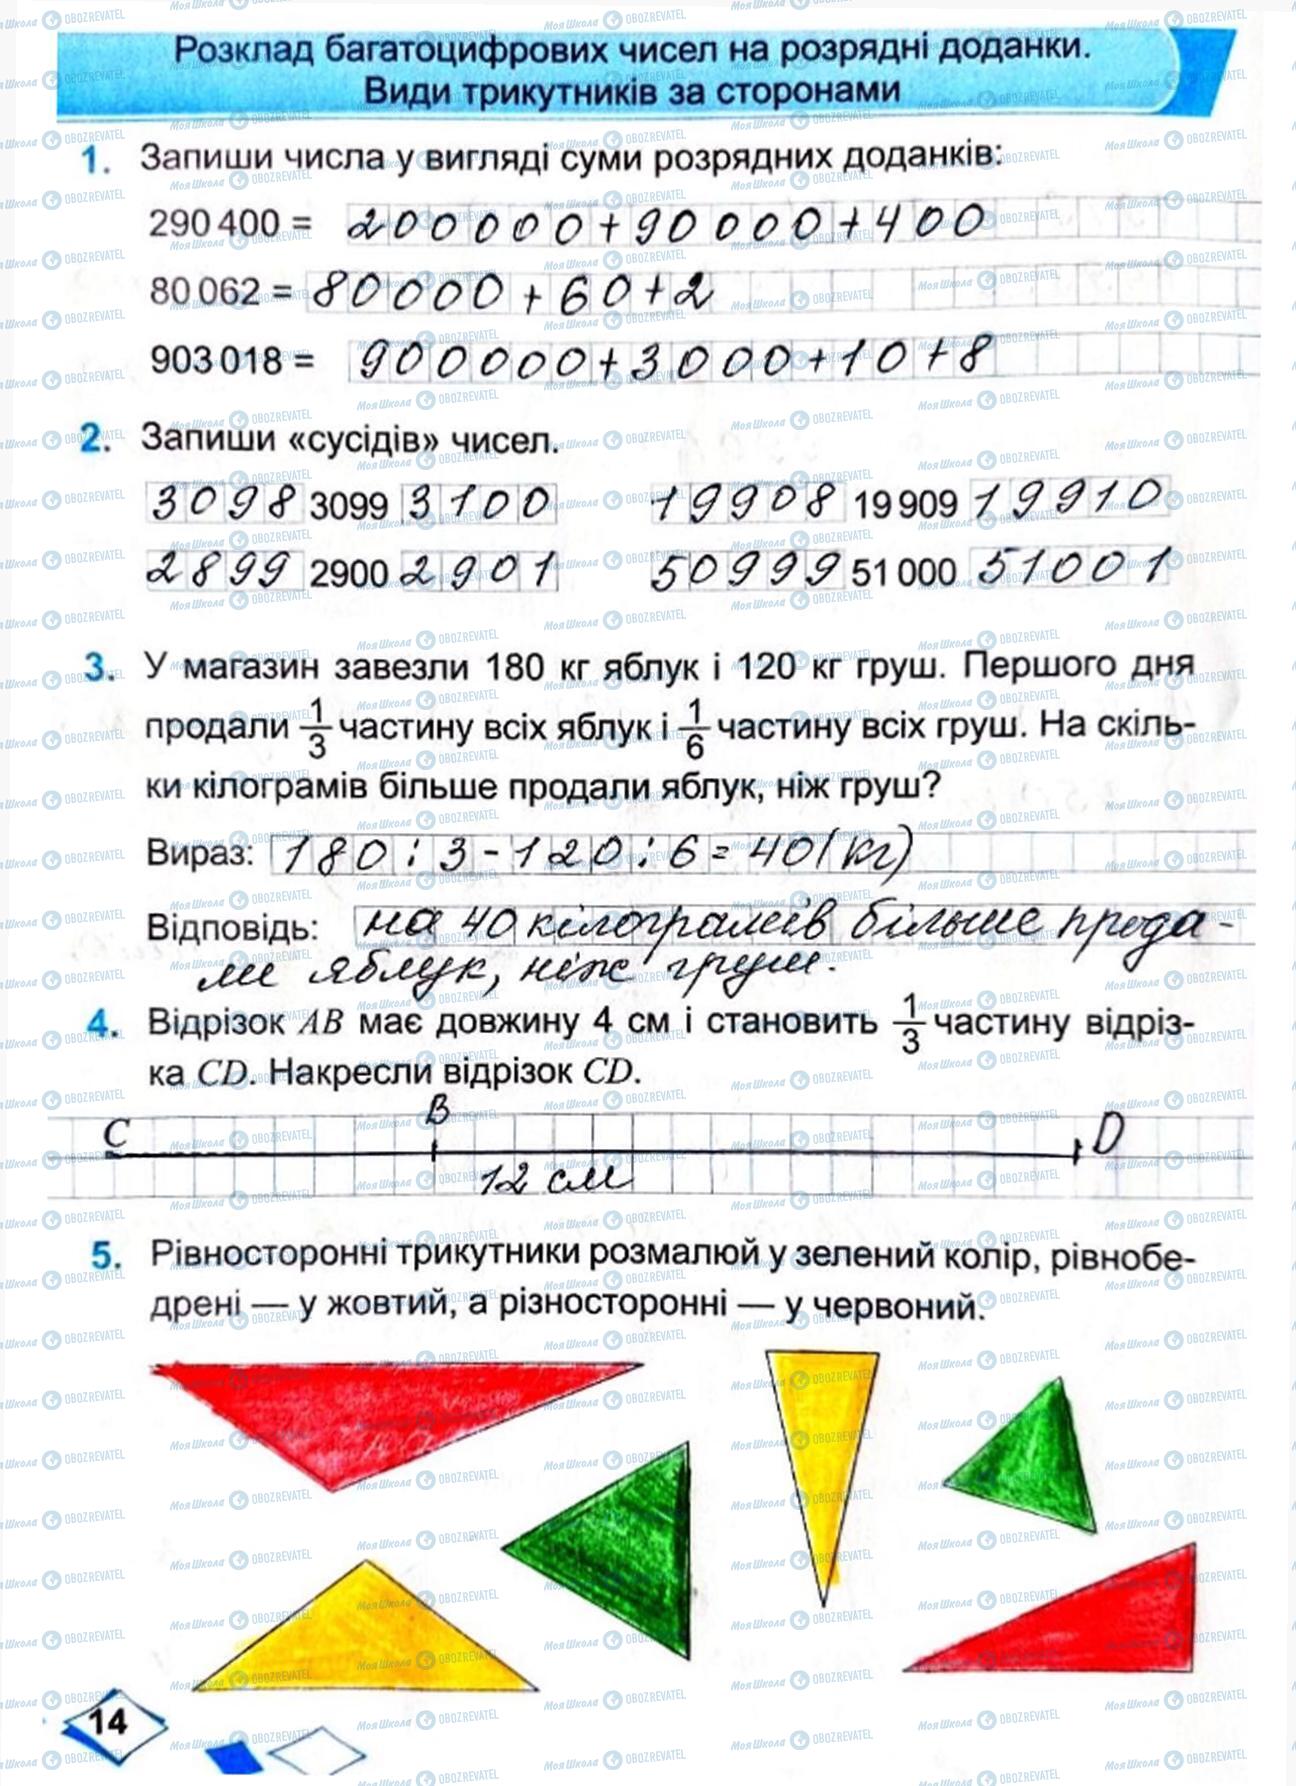 Розклад багатоцифрових чисел на розрядні доданки.
Види трикутників за сторонами
1. Запиши числа у вигляді суми розрядних доданків:
290 400 = 200000+90000+400
80 062 = 80000+60+2
903 018 = 900000+3000+10+8
2. Запиши «сусідів» чисел.
3098 3099 3100 19908 19 909 19910
2899 2900 2901 50999 51 000 51001
3. У магазин завезли 180 кг яблук і 120 кг груш. Першого дня
продали 1/3 частину всіх яблук і 1/6 частину всіх груш. На скіль-
ки кілограмів більше продали яблук, ніж груш?
Вираз: 180:3-120:6=40(кг)
Відповідь: на 40 кілограмів більше прода-
ли яблук, ніж груш.
4. Відрізок AB має довжину 4 см і становить 1/3 частину відріз-
ка CD. Накресли відрізок CD.
C B D
12 см
5. Рівносторонні трикутники розмалюй у зелений колір, рівнобе-
дрені — у жовтий, а різносторонні — у червоний.
14
МояШкола OBOZREVATEL